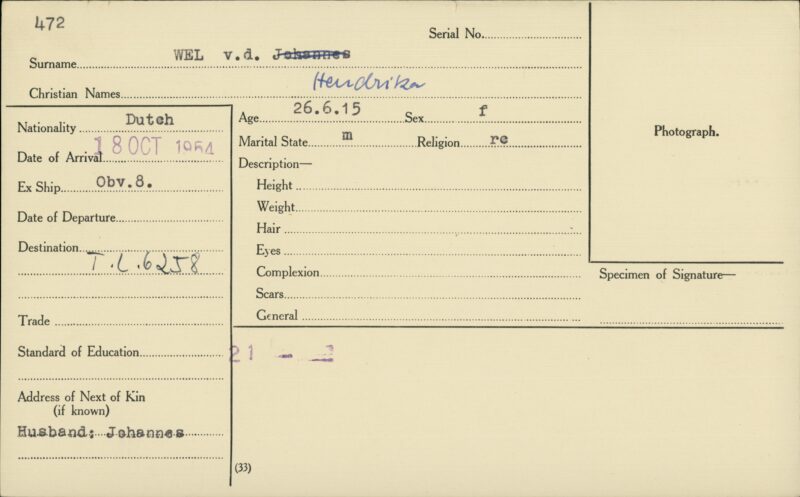 472
Serial No.
Surname WEL v.d. Johannes
Christian Names Hendrika
Nationality Dutch
Date of Arrival 18 OCT 1954
Ex Ship Obv.8.
Date of Departure
Destination
T.L.6258
Trade
Standard of Education
Address of Next of Kin
(if known)
Husband: Johannes
Age 26.6.15 Sex f
Marital State m Religion rc
Description—
Height
Weight
Hair
Eyes
Complexion
Scars
General
21 —
(33)
Photograph.
Specimen of Signature—